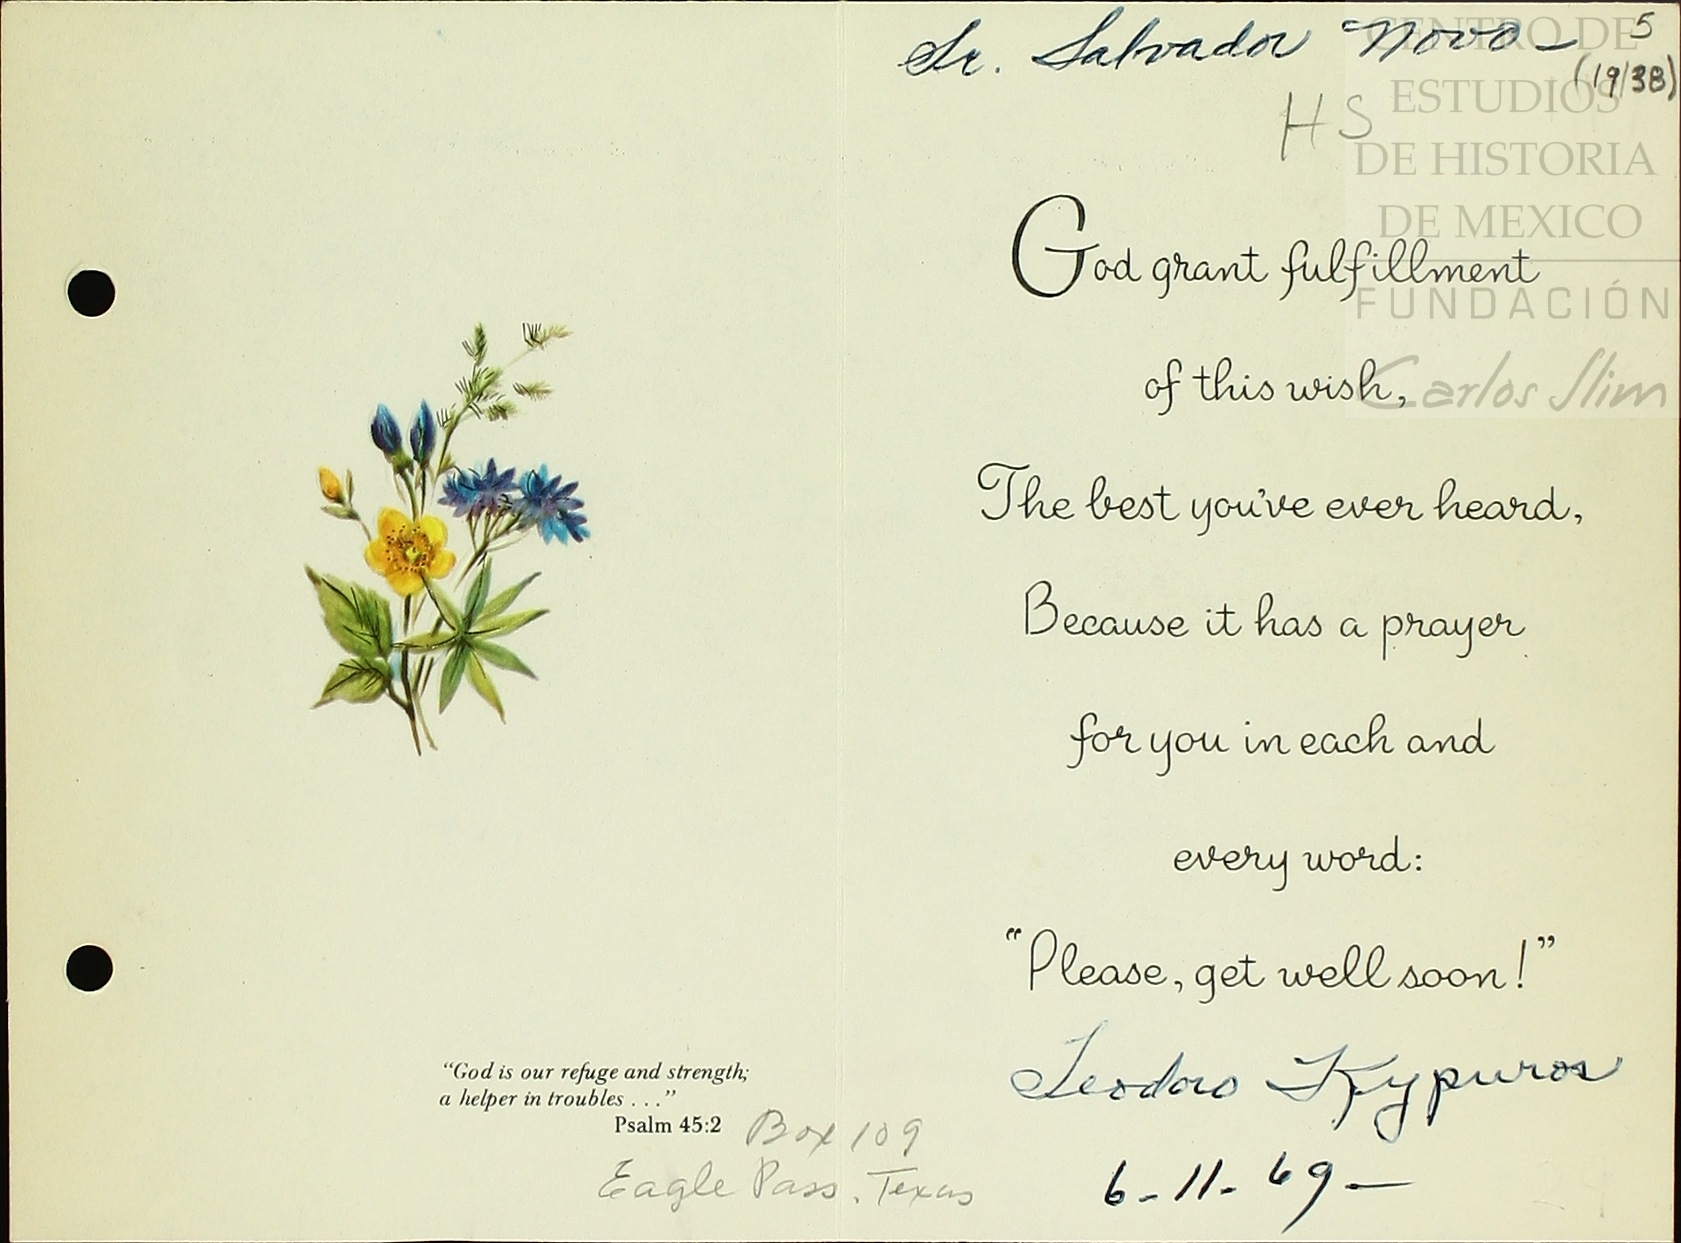 Sr. Salvador Novo - 5
(19/38)
H S
CENTRO DE
ESTUDIOS
DE HISTORIA
DE MEXICO
FUNDACIÓN
Carlos Slim
God grant fulfillment
of this wish,
The best you've ever heard,
Because it has a prayer
for you in each and
every word:
“Please, get well soon!”
Teodoro Kypuros
6-11-69-
“God is our refuge and strength;
a helper in troubles . . .”
Psalm 45:2
Box 109
Eagle Pass, Texas